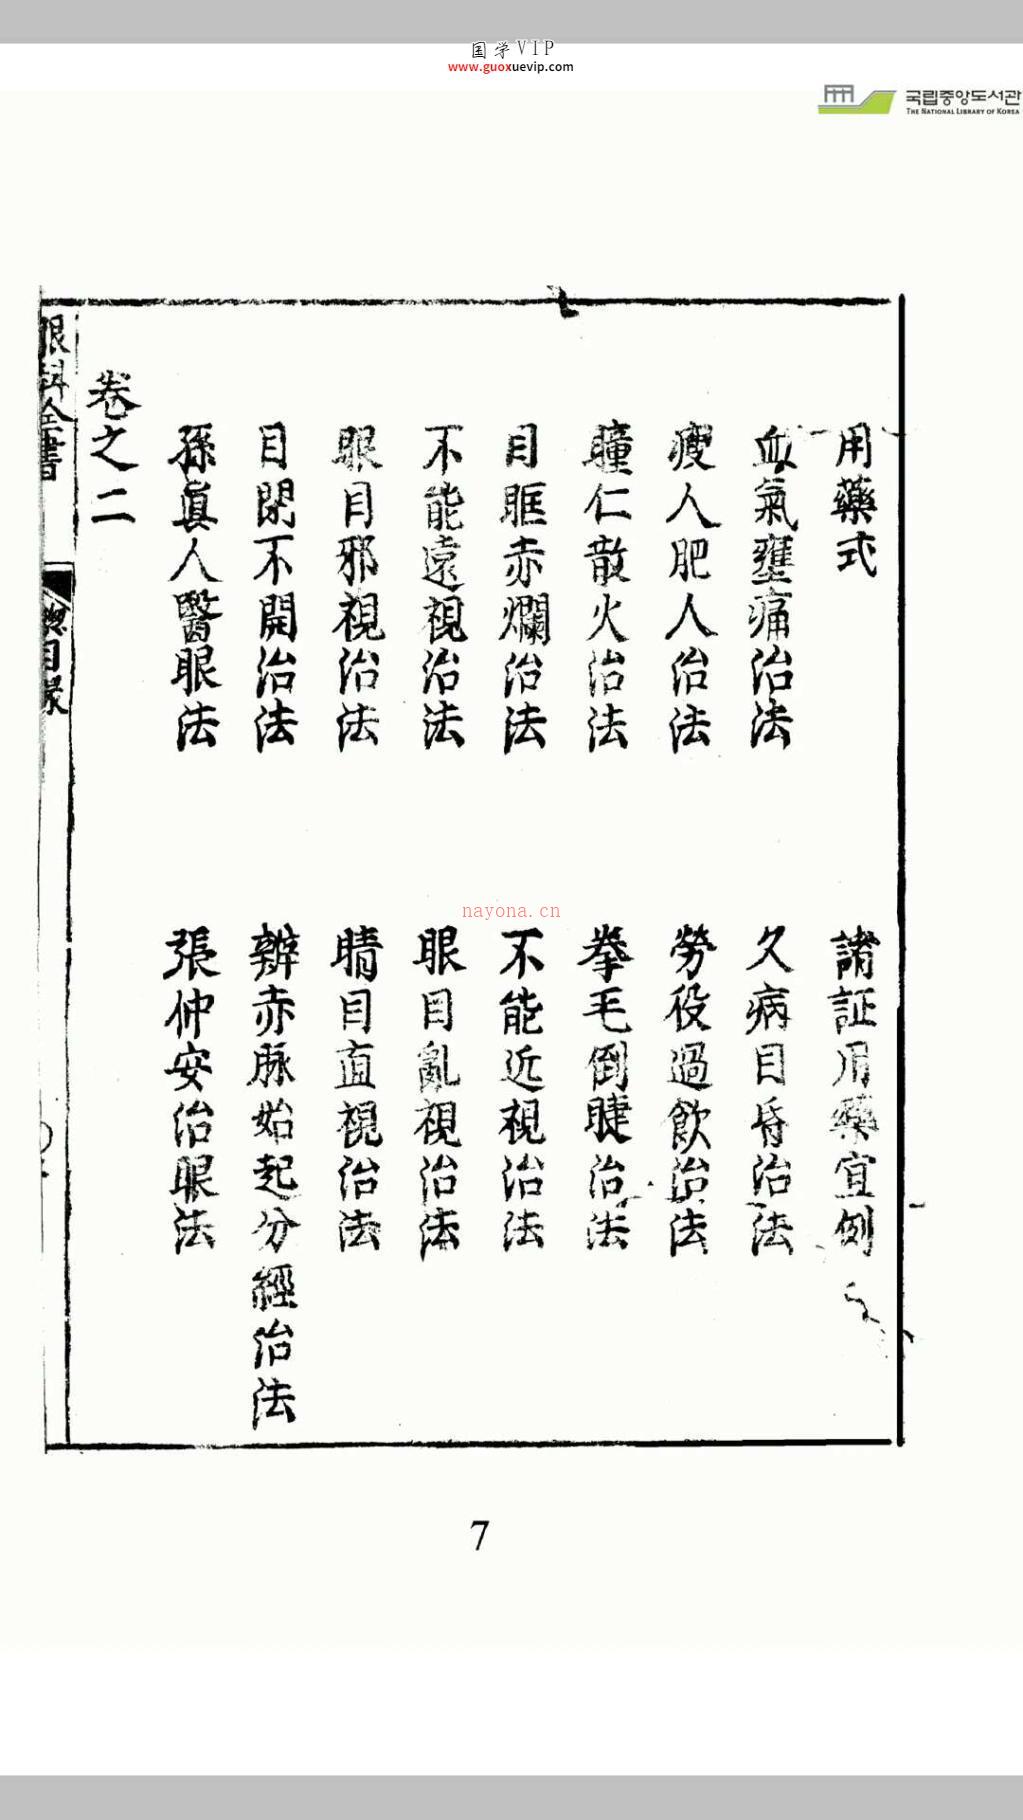 国学VIP
www.guoxuevip.com
국립중앙도서관
THE NATIONAL LIBRARY OF KOREA
用藥式
諸証用藥宜例
血氣壅痛治法
久病目昏治法
瘦人肥人治法
勞役過飲治法
瞳仁散火治法
拳毛倒睫治法
目眶赤爛治法
不能近視治法
不能遠視治法
眼目亂視治法
眼目邪視治法
睛目直視治法
目閉不開治法
辨赤脉始起分經治法
孫眞人醫眼法
張仲安治眼法
卷之二
眼科全書
目录
nayona.cn
7